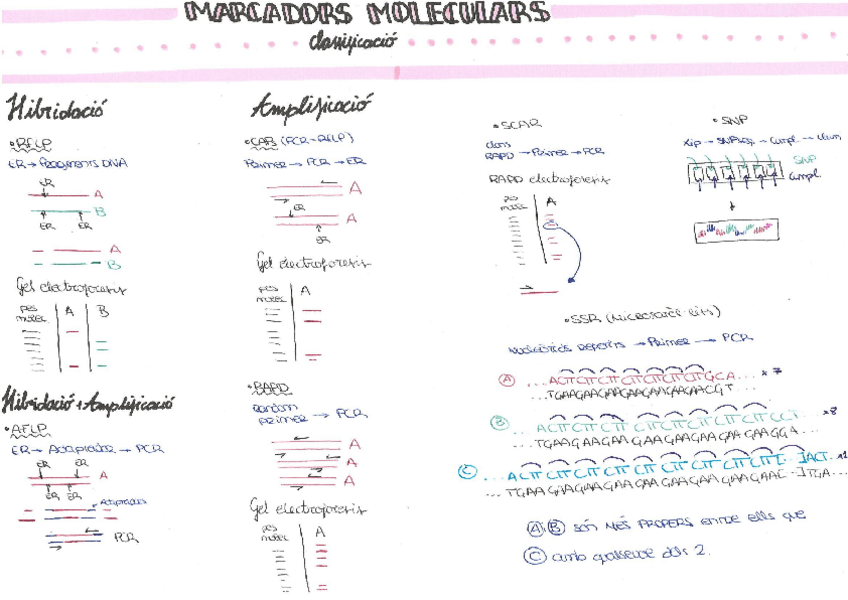 MARCADORS MOLECULARS
Classificació
Hibridació
• RFLP
ER → Fragments DNA
ER
A
B
ER ER
A
B
Gel electroforesis
PES MOLEC.
A
B
Hibridació + Amplificació
• AFLP
ER → Adaptador → PCR
ER ER
A
ER ER
Adaptadors
PCR
Amplificació
• CAPS (PCR-RFLP)
Primer → PCR → ER
A
ER
A
ER
Gel electroforesis
PES MOLEC.
A
• RAPD
Random primer → PCR
A
A
A
Gel electroforesis
PES MOLEC.
A
• SCAR
RAPD → Primer → PCR
RAPD electroforesis
PES MOLEC.
A
• SNP
Xip →
SNP
ampl.
• SSR (Microsatèl·lits)
Nucleòtids repetits → Primer → PCR
A ...ACTTCTTCTTCTTCTTCTTCTTGCA... x7
...TGAAGAAGAAGAAGAAGAAGAACGT...
B ...ACTTCTTCTTCTTCTTCTTCTTCTTCCT... x8
...TGAAGAAGAAGAAGAAGAAGAAGAAGGA...
C
A i B són MÉS PROPERS entre ells que
C amb qualsevol dels 2.